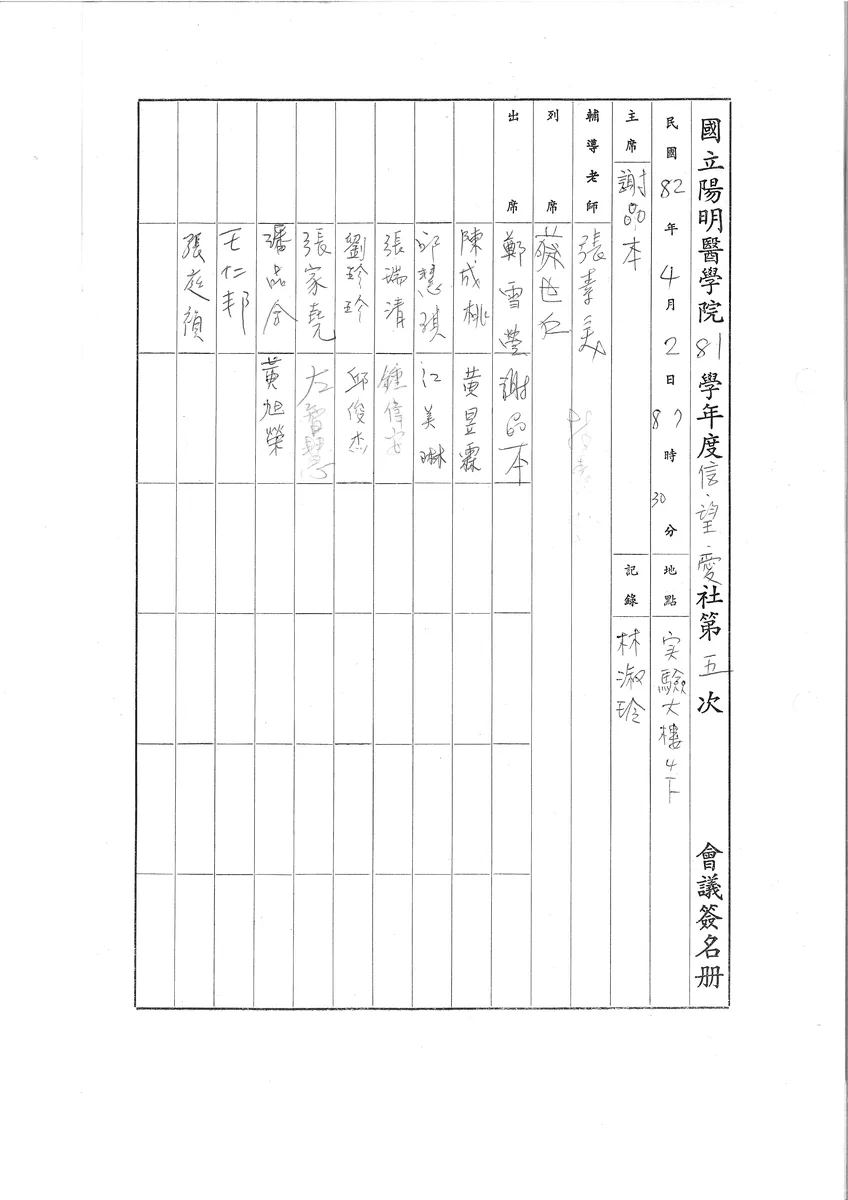 國立陽明醫學院81學年度信望愛社第五次 會議簽名册
民國82年4月2日 時30分 地點 实驗大樓4下
主席 謝品本 記錄 林淑玲
輔導老師 張素美
列席
出席 鄭雪瑩 謝品本
陳成桃 黃昱霖
邱慧琪 江美琳
張瑞清 鍾偉安
劉珍珍 邱俊杰
張家堯 左智慧
潘品合 黃旭榮
王仁邦
張庭禎